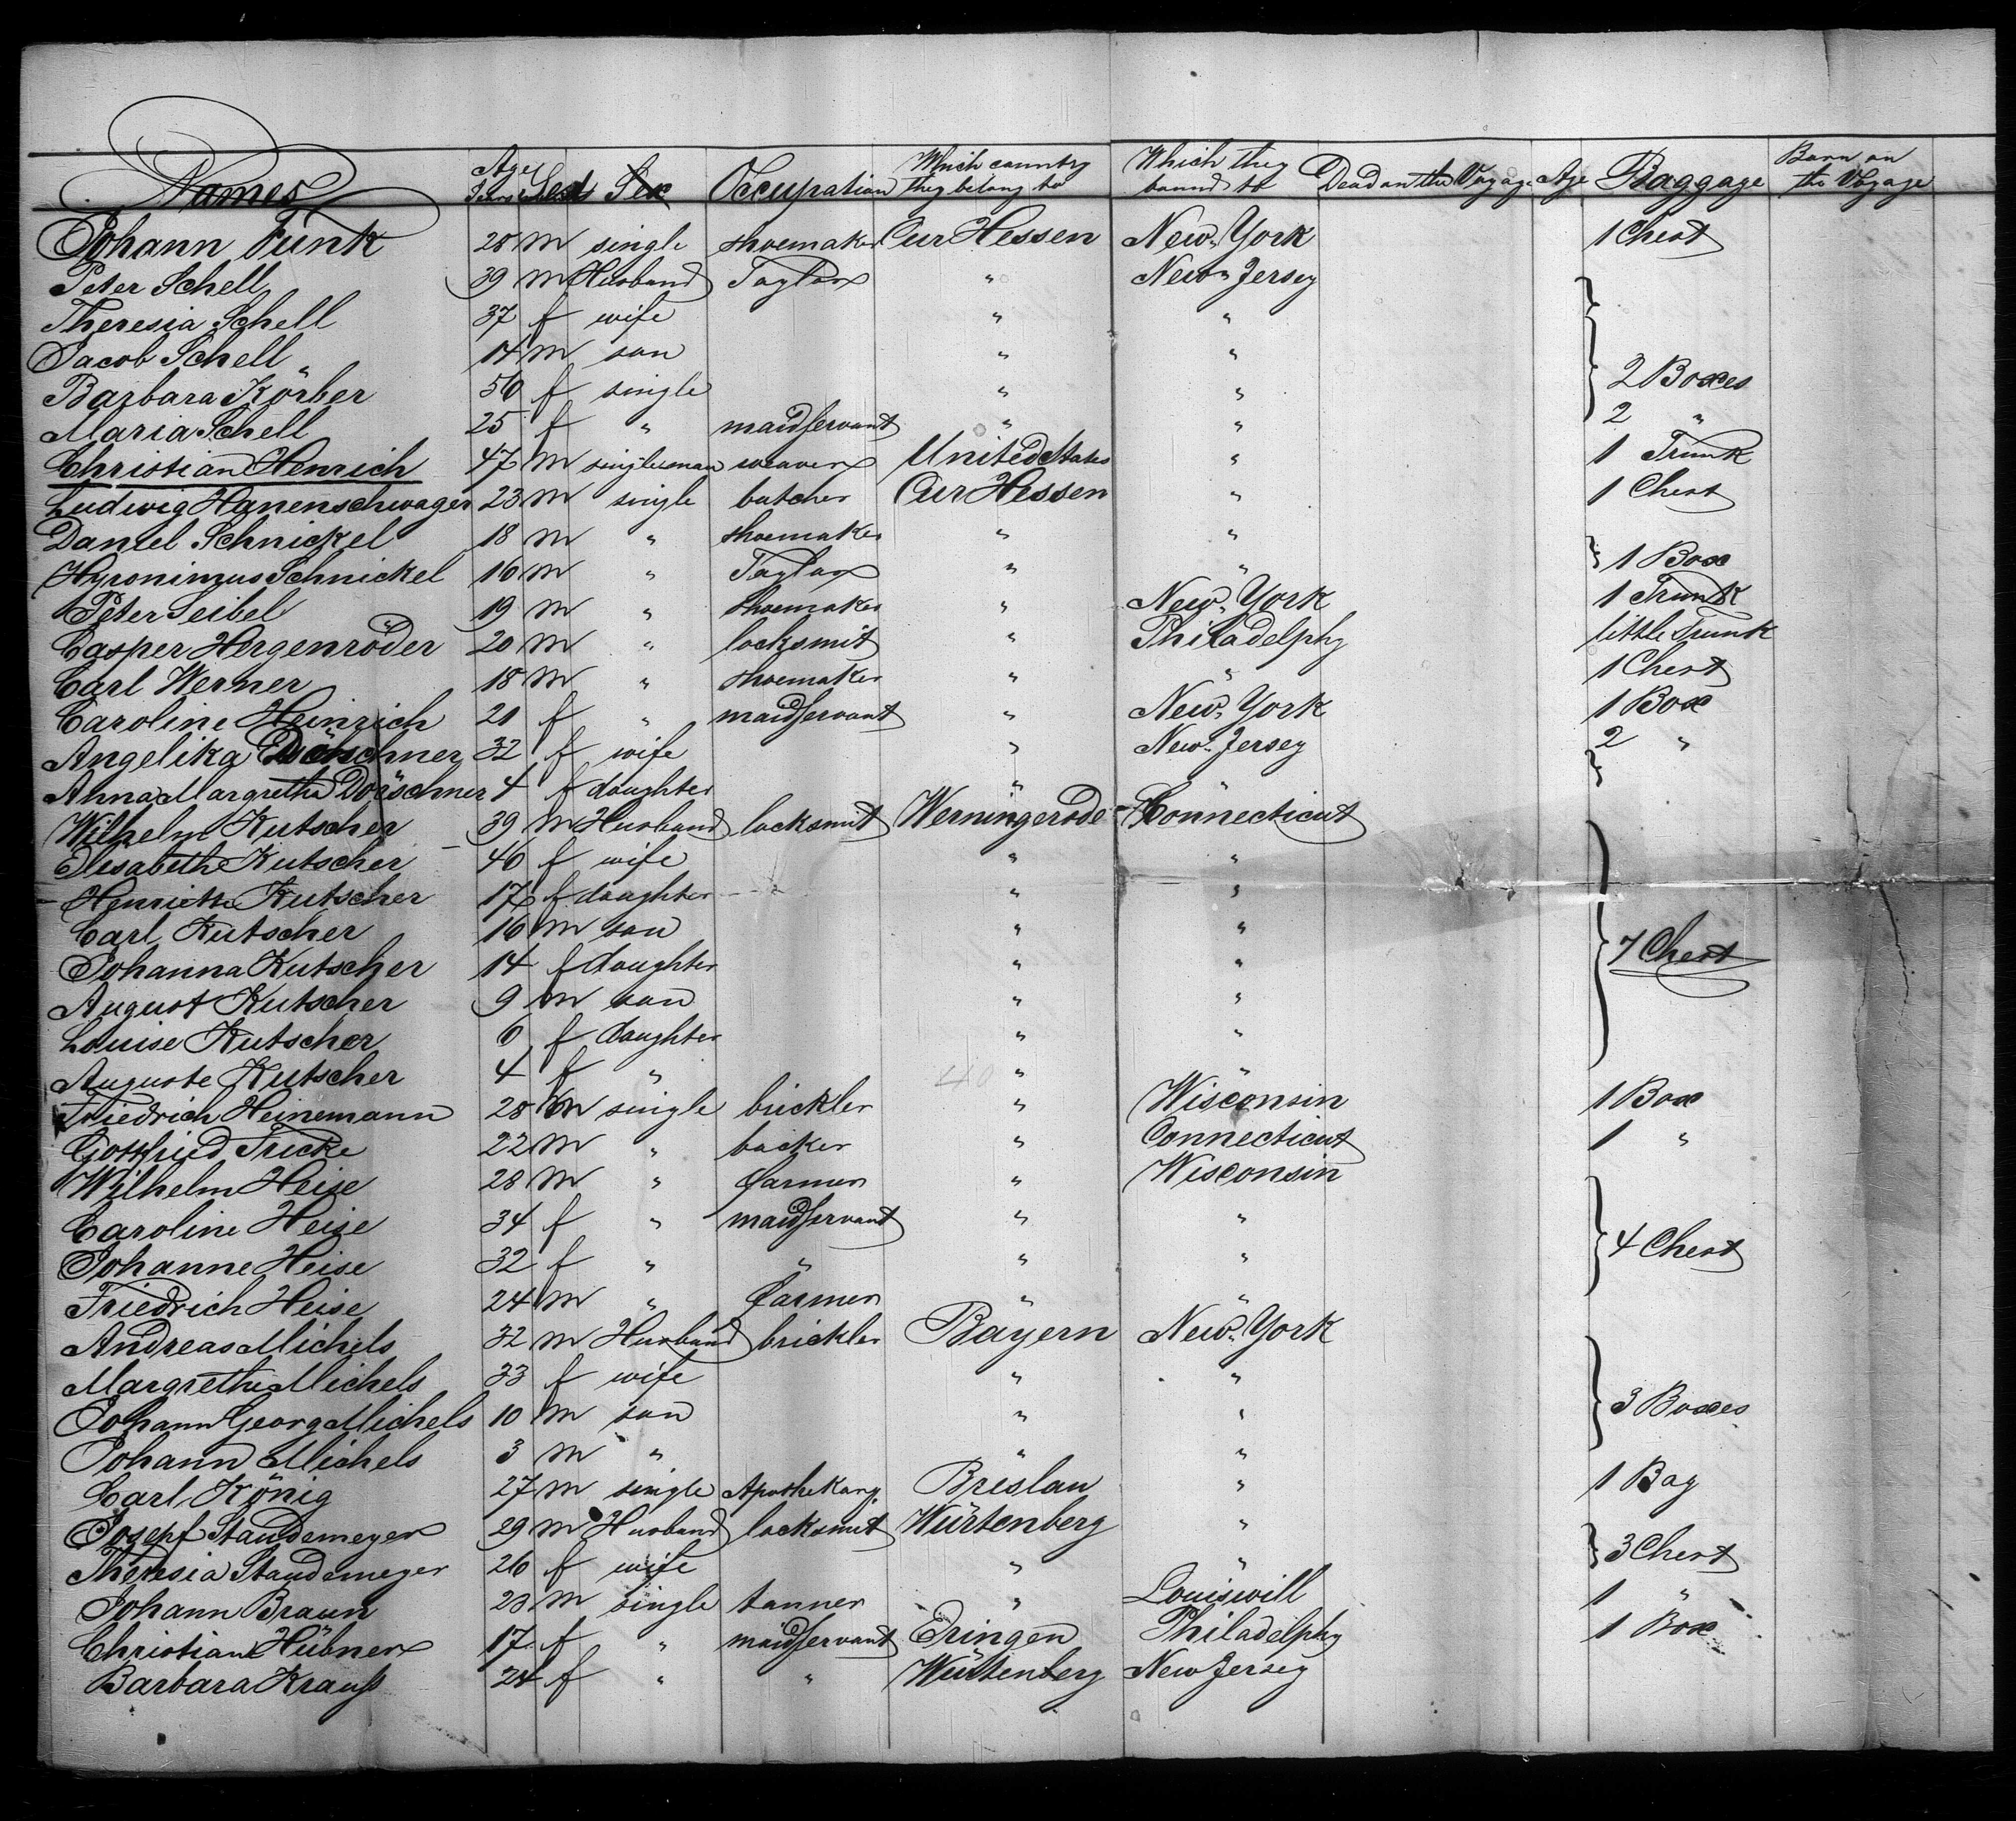 Names Age Years Sex Sex Occupation Which country they belong to Which they bound to Dead on the Voyage Age Baggage Born on the Voyage
Johann Funk 28 m single shoemaker CurHessen New-York 1 Chest
Peter Schell 39 m Husband Taylor " New-Jersey
Theresia Schell 37 f wife " "
Jacob Schell 14 m son " "
Barbara Körber 50 f single " " 2 Boxes
Maria Schell 25 f " maidservant " " 2 "
Christian Henrich 47 m singleman weaver United States " 1 Trunk
Ludwig Hanenschwager 23 m single butcher CurHessen " 1 Chest
Daniel Schnickel 18 m " shoemaker " "
Hyronimus Schnickel 16 m " Taylor " " 1 Box
Peter Seibel 19 m " shoemaker " New-York 1 Trunk
Casper Hergenröder 20 m " locksmit " Philadelphy little Trunk
Carl Werner 18 m " shoemaker " " 1 Chest
Caroline Heinrich 21 f " maidservant " New-York 1 Box
Angelika Döschner 32 f wife " New-Jersey 2 "
Anna Margretha Döröschner 4 f daughter " "
Wilhelm Kutscher 39 m Husband locksmit Werningerode Connecticut
Elisabethe Kutscher 46 f wife " "
Henriette Kutscher 17 f daughter " "
Carl Kutscher 16 m son " "
Johanna Kutscher 14 f daughter " " 7 Chest
August Kutscher 9 m son " "
Louise Kutscher 6 f daughter " "
Auguste Kutscher 4 f " " "
Friedrich Heinemann 28 m single brickler " Wisconsin 1 Box
Gottfried Fricke 22 m " backer " Connecticut 1 "
Wilhelm Heise 28 m " farmer " Wisconsin
Caroline Heise 34 f " maidservant " "
Johanne Heise 32 f " " " " 4 Chest
Friedrich Heise 24 m " farmer " "
Andreas Michels 32 m Husband brickler Bayern New-York
Margrethe Michels 33 f wife " "
Johann Georg Michels 10 m son " " 3 Boxes
Johann Michels 3 m " " "
Carl König 27 m single Apothekary Breslau " 1 Bag
Josepf Staudemeyer 29 m Husband locksmit Würtenberg "
Theresia Staudemeyer 26 f wife " " 3 Chest
Johann Braun 23 m single tanner " Louiswill 1 "
Christiane Hübner 17 f " maidservant Eringen Philadelphy 1 Box
Barbara Krauß 24 f " " Würtenberg New Jersey